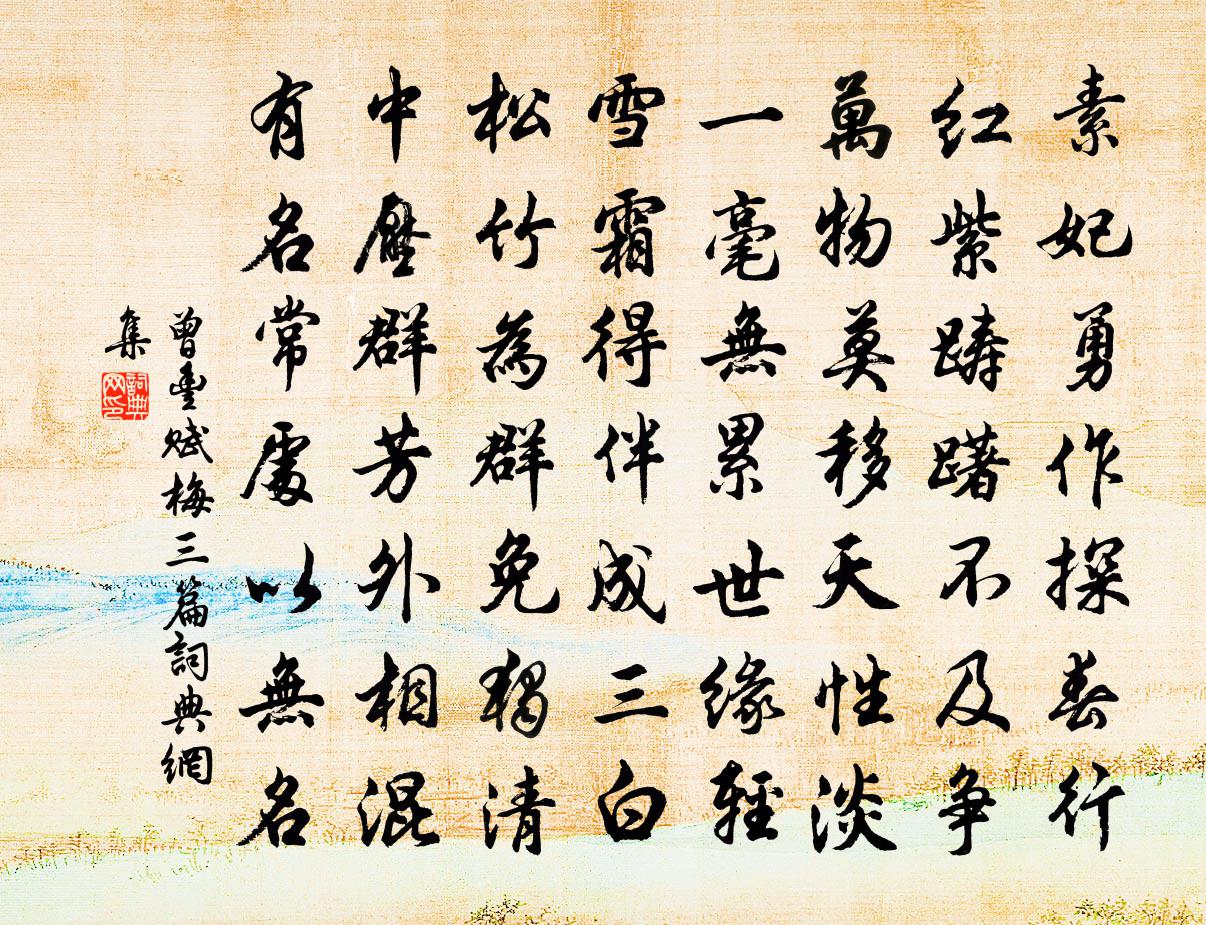 素妃勇作探春行
紅紫躊躇不及爭
萬物莫移天性淡
一毫無累世緣輕
雪霜得伴成三白
松竹為群免獨清
中壓群芳外相混
有名常處以無名
曾豐賦梅三篇詞典網
集
詞典
网印